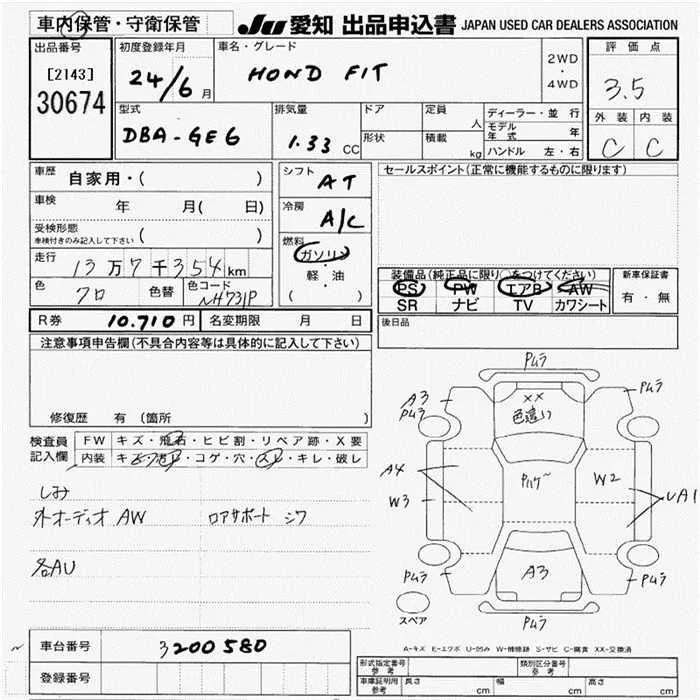 車内保管・守衛保管
JU 愛知 出品申込書 JAPAN USED CAR DEALERS ASSOCIATION
出品番号
[2143]
30674
初度登録年月
24/6 月
車名・グレード
HOND FIT
2WD
・
4WD
評価点
3.5
外装 内装
C C
型式
DBA-GE6
排気量
1.33 CC
ドア
形状
定員
人
積載
kg
ディーラー・並 行
モデル年式 年
ハンドル 左・右
車歴 自家用・( )
車検 年 月( 日)
受検形態
車検付きのみ記入して下さい ( )
走行 13万7千354km
色 クロ 色替 色コード NH731P
シフト AT
冷房 A/C
燃料
ガソリン
・
軽・油
( )
セールスポイント(正常に機能するものに限ります)
装備品(純正品に限り○をつけてください)
PS PW エアB AW
SR ナビ TV カワシート
新車保証書
有・無
R券 10.710円 名変期限 月 日
後日品
注意事項申告欄(不具合内容等は具体的に記入して下さい)
修復歴 有 (箇所 )
検査員
記入欄
FW キズ・飛石・ヒビ割・リペア跡・X要
内装 コゲ・穴・スレ・キレ・破レ
しみ
外オーディオ AW ロアサポート シワ
各AU
Pムラ
A3
Pムラ
XX
色違い
Pムラ
A4
W3
Pハゲ~
W2
UA1
Pムラ
A3
Pムラ
Pムラ
スペア
A-キズ E-エクボ U-凹み W-補修跡 S-サビ C-腐食 XX-交換済
車台番号 3200580
登録番号
形式指定番号
参考
類別区分番号
参考
車庫証明用
参考
長さ cm 幅 cm 高さ cm